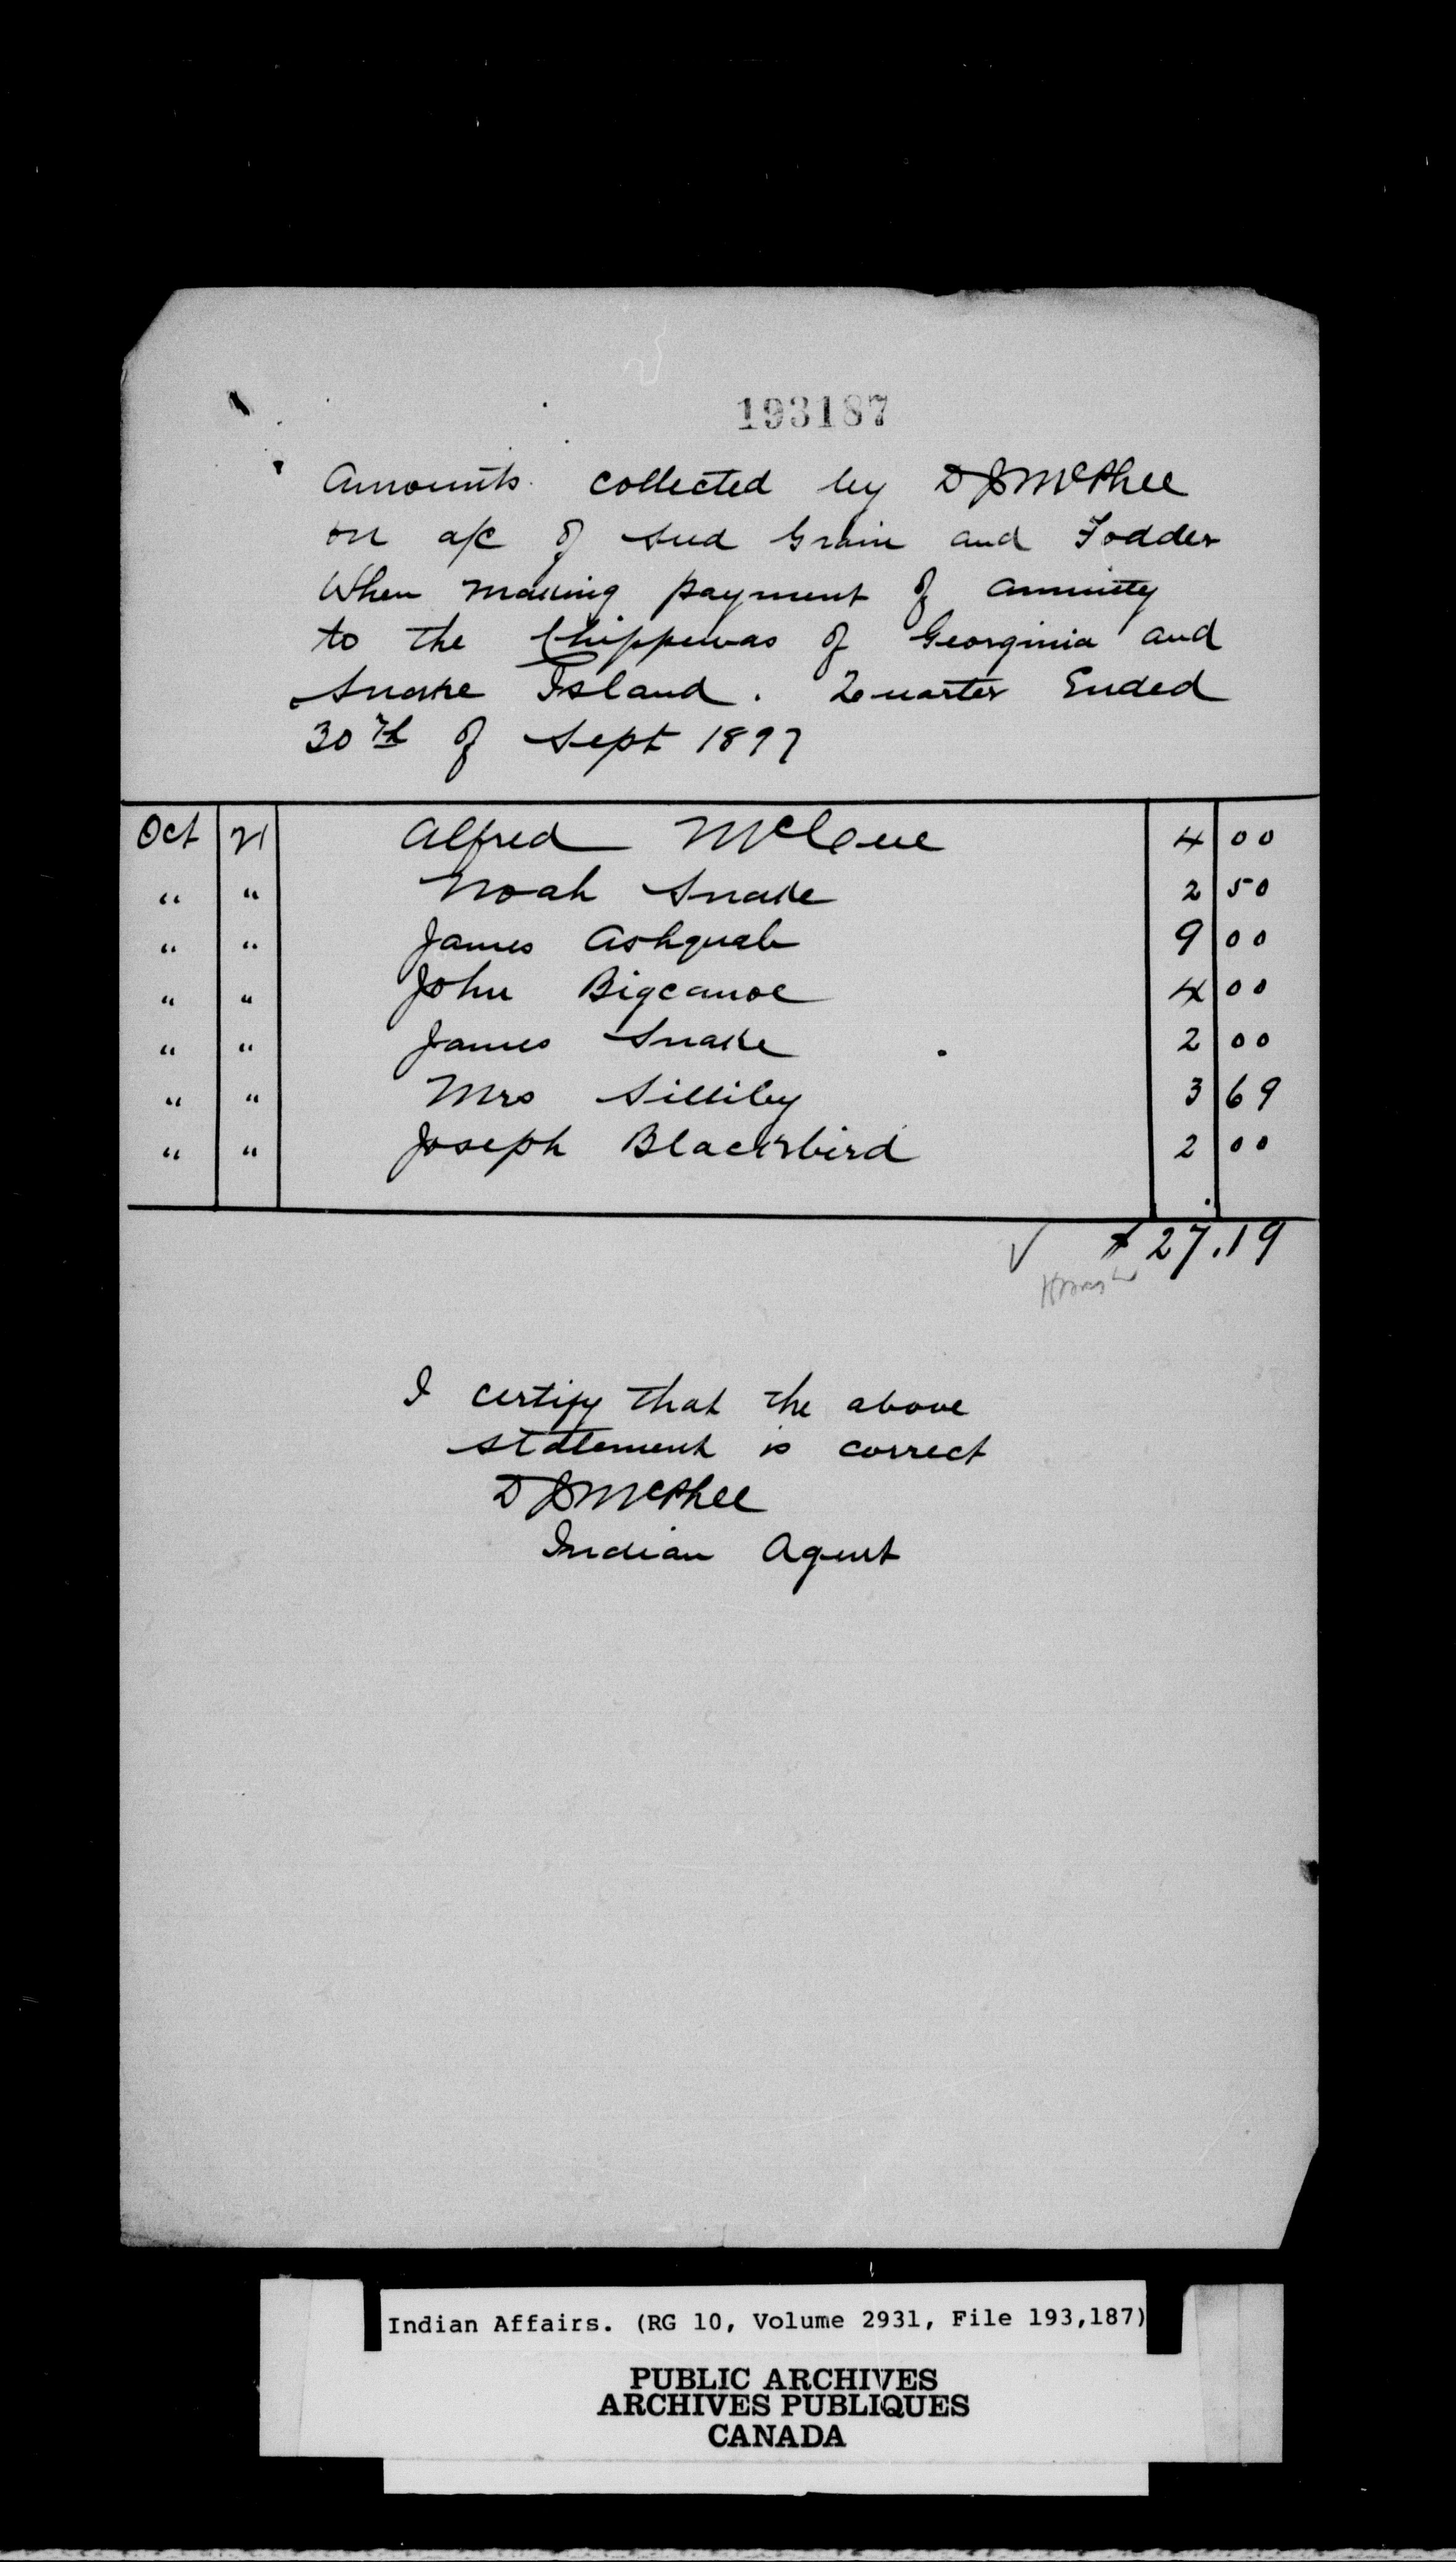 193187
Amounts collected by D J McPhee
on a/c of seed Grain and Fodder
When making payment of annuity
to the Chippewas of Georginia and
Snake Island. Quarter Ended
30th of Sept 1897
Oct 21 Alfred McCue 4 00
" " Noah Snake 2 50
" " James Ashquab 9 00
" " John Bigcanoe 4 00
" " James Snake 2 00
" " Mrs Silliby 3 69
" " Joseph Blackbird 2 00
$27.19
I certify that the above
statement is correct
D J McPhee
Indian Agent
Indian Affairs. (RG 10, Volume 2931, File 193,187)
PUBLIC ARCHIVES
ARCHIVES PUBLIQUES
CANADA